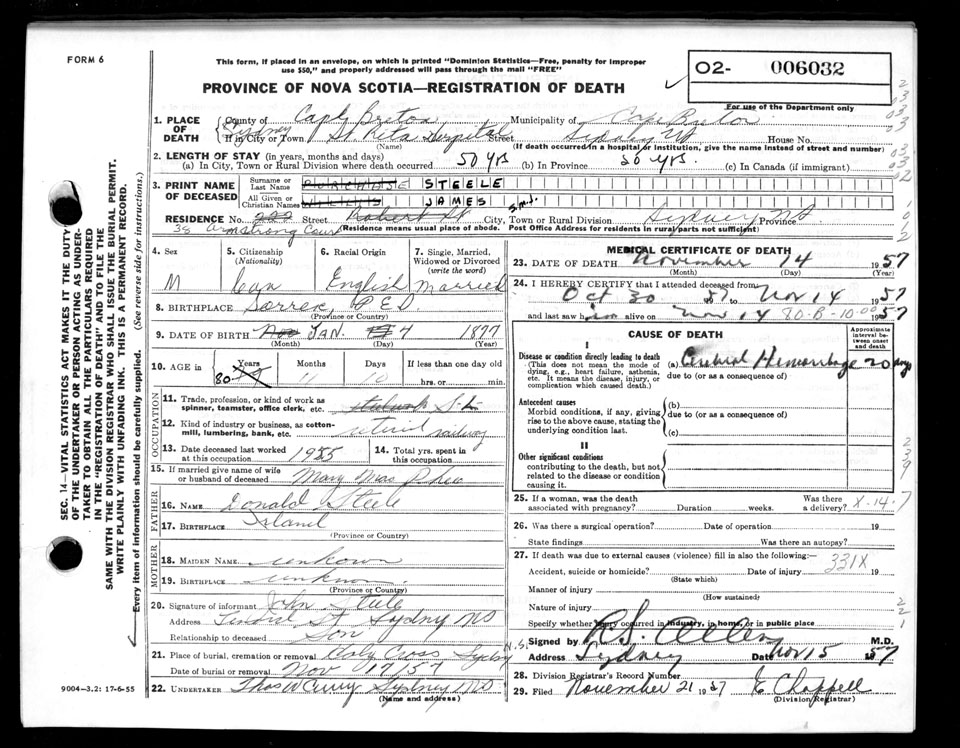 FORM 6
This form, if placed in an envelope, on which is printed "Dominion Statistics—Free, penalty for improper
use $50," and properly addressed will pass through the mail "FREE"
PROVINCE OF NOVA SCOTIA—REGISTRATION OF DEATH
02- 006032
For use of the Department only
1. PLACE OF DEATH
County of Cape Breton Municipality of Cape Breton
If in City or Town Sydney St Rita Hospital Street Sydney NS House No.
(Name) (If death occurred in a hospital or institution, give the name instead of street and number)
2. LENGTH OF STAY (in years, months and days)
(a) In City, Town or Rural Division where death occurred 50 yrs (b) In Province 50 yrs. (c) In Canada (if immigrant)
3. PRINT NAME OF DECEASED
Surname or Last Name PURCHASE STEELE
All Given or Christian Names JAMES
RESIDENCE No. 222 Street Robert St City, Town or Rural Division Sydney Province N.S
38 Armstrong Court (Residence means usual place of abode. Post Office Address for residents in rural parts not sufficient)
4. Sex
M
5. Citizenship (Nationality)
Can
6. Racial Origin
English
7. Single, Married, Widowed or Divorced (write the word)
Married
8. BIRTHPLACE P E I
(Province or Country)
9. DATE OF BIRTH Nov JAN. 4 1877
(Month) (Day) (Year)
10. AGE Years Months Days If less than one day old
80 11 10 hrs. or min.
OCCUPATION
11. Trade, profession, or kind of work as spinner, teamster, office clerk, etc.
12. Kind of industry or business, as cotton-mill, lumbering, bank, etc. retired railway
13. Date deceased last worked at this occupation 1955
14. Total yrs. spent in this occupation
15. If married give name of wife or husband of deceased Mary Mac Phee
FATHER
16. NAME Donald Steele
17. BIRTHPLACE Island
(Province or Country)
MOTHER
18. MAIDEN NAME unknown
19. BIRTHPLACE unknown
(Province or Country)
20. Signature of informant John Steele
Address St Sydney NS
Relationship to deceased Son
21. Place of burial, cremation or removal Holy Cross Sydney N.S.
Date of burial or removal Nov 17/57
22. UNDERTAKER Thos W Curry Sydney NS
(Name and address)
MEDICAL CERTIFICATE OF DEATH
23. DATE OF DEATH November 14 1957
(Month) (Day) (Year)
24. I HEREBY CERTIFY that I attended deceased from
Oct 30 57 to Nov 14 1957
and last saw him alive on Nov 14 80-B-10-00 1957
CAUSE OF DEATH
Approximate interval between onset and death
I
Disease or condition directly leading to death
(This does not mean the mode of dying, e.g., heart failure, asthenia, etc. It means the disease, injury, or complication which caused death.)
(a) Cerebral Hemorrhage 20 days
due to (or as a consequence of)
Antecedent causes
Morbid conditions, if any, giving rise to the above cause, stating the underlying condition last.
(b)
due to (or as a consequence of)
(c)
II
Other significant conditions
contributing to the death, but not related to the disease or condition causing it.
25. If a woman, was the death associated with pregnancy? Duration weeks. Was there a delivery? X-14-7
26. Was there a surgical operation? Date of operation 19
State findings Was there an autopsy?
27. If death was due to external causes (violence) fill in also the following:—
331X
Accident, suicide or homicide? Date of injury 19
(State which)
Manner of injury
(How sustained)
Nature of injury
Specify whether injury occurred in industry, in home, or in public place
Signed by M.D.
Address Sydney Date Nov 15 1957
28. Division Registrar's Record Number
29. Filed November 21 1957 E Chappell
(Division Registrar)
SEC. 14—VITAL STATISTICS ACT MAKES IT THE DUTY
OF THE UNDERTAKER OR PERSON ACTING AS UNDER-
TAKER TO OBTAIN ALL THE PARTICULARS REQUIRED
IN THE "REGISTRATION OF DEATH" AND TO FILE THE
SAME WITH THE DIVISION REGISTRAR WHO SHALL ISSUE THE BURIAL PERMIT.
WRITE PLAINLY WITH UNFADING INK. THIS IS A PERMANENT RECORD.
Every item of information should be carefully supplied. (See reverse side for instructions.)
9004—3.2: 17-6-55